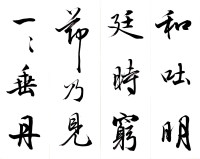 和吐明
廷時窮
節乃見
一〻垂丹